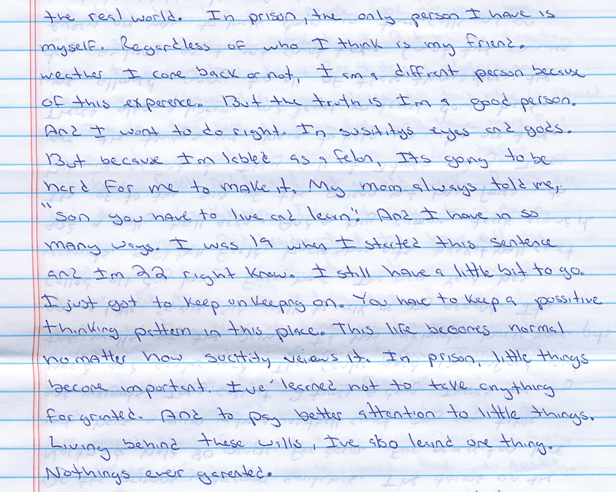 the real world. In prison, the only person I have is
myself. Regardless of who I think is my friend.
weather I come back or not, I am a diffrent person because
of this experence. But the truth is I'm a good person.
And I want to do right. In susititys eyes and gods.
But because I'm labled as a felon, Its going to be
hard for me to make it. My mom always told me,
"son you have to live and learn". And I have in so
many ways. I was 19 when I started this sentence
and I'm 22 right know. I still have a little bit to go.
I just got to keep on keepng on. You have to keep a possitive
thinking pattern in this place. This life becomes normal
no matter how sucitity veiws it. In prison, little things
become important. I've learned not to take anything
for granted. And to pay better attention to little things.
Living behind these wills, I've also learnd one thing.
Nothings ever garented.